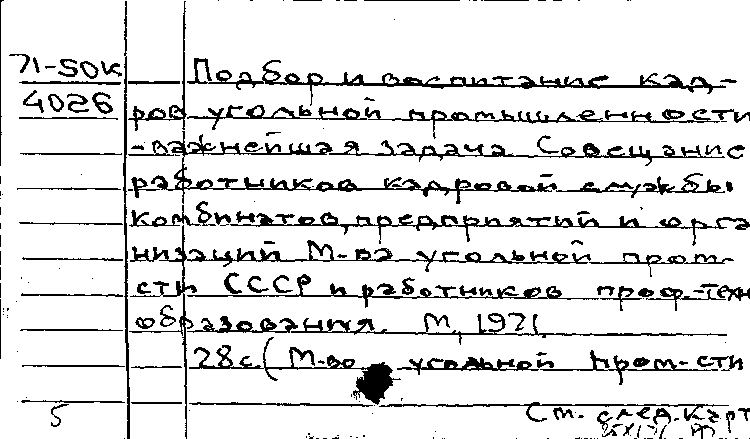 71-50к Подбор и воспитание кад-
4026 ров угольной промышленности
-важнейшая задача. Совещание
работников кадровой службы
комбинатов, предприятий и орга
низаций М-ва угольной пром-
сти СССР и работников проф.-техн
образования. М, 1971.
28с. (М-во угольной пром-сти
5 См. след. карт